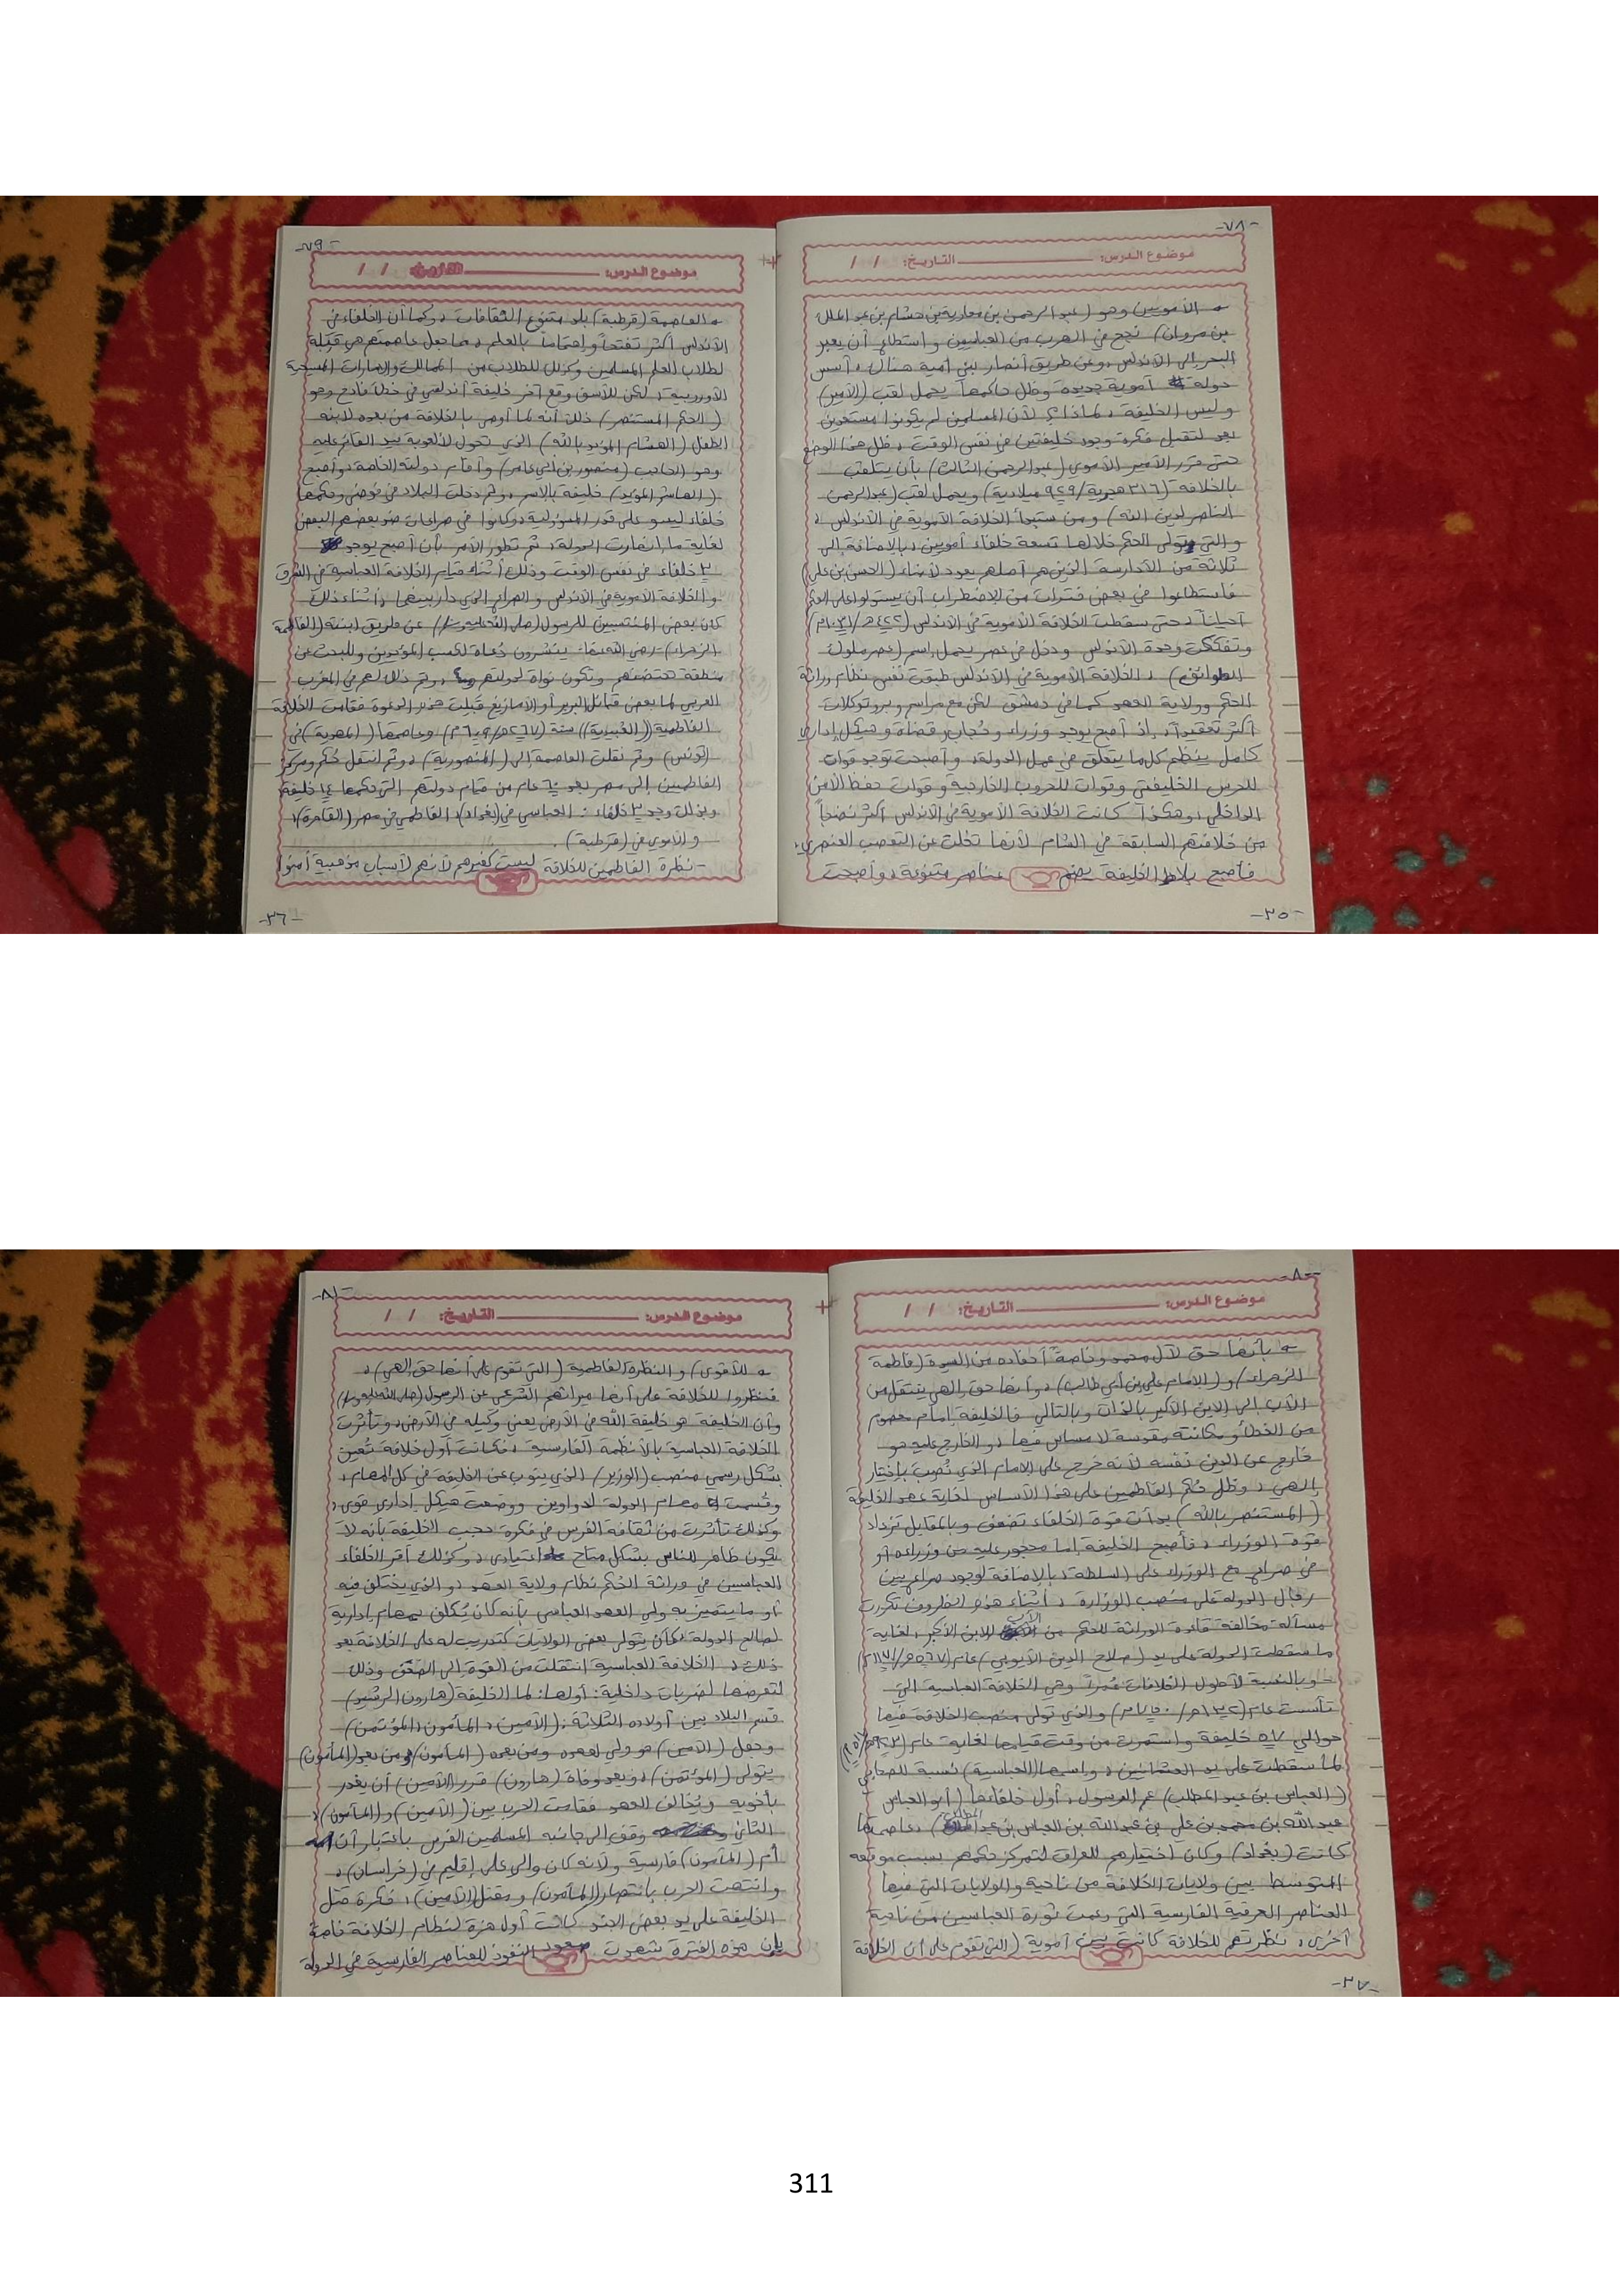 -٧٨-
موضوع الدرس: التاريخ: / /
الأمويين وهو (عبد الرحمن بن معاوية بن هشام بن عبد الملك
بن مروان) نجح في الهرب من العباسيين واستطاع أن يعبر
البحر إلى الأندلس وعن طريق أنصار لبني أمية هناك، أسس
دولة أموية جديدة وظل حاكمها يحمل لقب (الأمير)
وليس الخليفة، لماذا؟ لأن المسلمين لم يكونوا مستعدين
بعد لتقبل فكرة وجود خليفتين في نفس الوقت، ظل هذا الوضع
حتى قرر الأمير الأموي (عبد الرحمن الثالث) بأن يتلقب
بالخلافة (٣١٦ هجرية/٩٢٩ ميلادية) ويحمل لقب (عبد الرحمن
الناصر لدين الله) ومن ستبدأ الخلافة الأموية في الأندلس،
والتي تولى الحكم خلالها تسعة خلفاء أمويين، بالإضافة إلى
ثلاثة من الأدارسة الذين هم أصلهم يعود لأبناء (الحسن بن علي)
فاستطاعوا في بعض فترات من الإضطراب أن يستولوا على الحكم
أحياناً، حتى سقطت الخلافة الأموية في الأندلس (٤٢٢ه/١٠٣١م)
وتفككت وحدة الأندلس ودخل في عصر يحمل اسم (عصر ملوك
الطوائف)، الخلافة الأموية في الأندلس طبقت نفس نظام وراثة
الحكم وولاية العهد كما في دمشق لكن مع مراسم وبروتوكلات
أكثر تعقيداً، إذ أصبح يوجد وزراء وحُجاب وقضاة وهيكل إداري
كامل ينظم كل ما يتعلق في عمل الدولة، وأصبحت توجد قوات
للحرس الخليفتي وقوات للحروب الخارجية وقوات حفظ الأمن
الداخلي، وهكذا كانت الخلافة الأموية في الأندلس أكثر نضجاً
من خلافتهم السابقة في الشام لأنها تخلت عن التعصب العنصري،
فأصبح بلاط الخليفة يضم عناصر متنوعة، وأصبحت
-٣٥-
-٧٩-
موضوع الدرس: التاريخ: / /
العاصمة (قرطبة) بلد متنوع الثقافات، وكما أن الخلفاء في
الأندلس أكثر تفتحاً وإهتماماً بالعلم، مما جعل عاصمتهم هي قبلة
لطلاب العلم المسلمين وكذلك للطلاب من الممالك والإمارات المسيحية
الأوروبية، لكن للأسف وقع آخر خليفة أندلسي في خطأ فادح وهو
(الحكم المستنصر) ذلك أنه لما أوصى بالخلافة من بعده لابنه
الطفل (الهشام المؤيد بالله) الذي تحول لألعوبة بيد القائم عليه
وهو الحاجب (منصور بن أبي عامر) وأقام دولته الخاصة، وأصبح
(الهاشم المؤيد) خليفة بالاسم، وثم دخلت البلاد في فوضى وحكمها
خلفاء ليسو على قدر المسؤولية، وكانوا في صراعات ضد بعضهم البعض
لغاية ما انهارت الدولة، ثم تطور الأمر بأن أصبح يوجد
٣ خلفاء في نفس الوقت وذلك أثناء قيام الخلافة العباسية في الشرق
والخلافة الأموية في الأندلس والصراع الذي دار بينهما، أثناء ذلك
كان بعض المنتسبين للرسول (صلى الله عليه وسلم) عن طريق ابنته (الفاطمة
الزهراء) -رضي الله عنها- ينشرون دُعاة لكسب المؤيدين وللبحث عن
منطقة تحتضنهم وتكون نواة لدولتهم، وتم ذلك لهم في المغرب
العربي لما بعض قبائل البربر أو الأمازيغ قبلت هذه الدعوة فقامت الخلافة
الفاطمية ((العُبيدية)) سنة (٢٩٧ه/٩٠٩م) وعاصمتها (المهدية) في
(تونس) وثم نقلت العاصمة إلى (المنصورية)، وثم انتقل حُكم ومركز
الفاطميين إلى مصر بعد ٦٠ عام من قيام دولتهم التي حكمها ١٤ خليفة
وبذلك وجد ٣ خلفاء: العباسي في (بغداد)، الفاطمي في مصر (القاهرة)،
والأموي في (قرطبة).
-نظرة الفاطميين للخلافة ليست كغيرهم لأنهم لأسباب مذهبية آمنوا
-٣٦-
-٨٠-
موضوع الدرس: التاريخ: / /
بأنها حق لآل محمد وخاصة أحفاده من السيدة (فاطمة
الزهراء) و(الإمام علي بن أبي طالب)، وأنها حق إلهي ينتقل من
الأب إلى الابن الأكبر بالذات وبالتالي فالخليفة إمام معصوم
من الخطأ ومكانته مقدسة لا مساس فيها، والخارج عليه هو
خارج عن الدين نفسه لأنه خرج على الامام الذي نُصب بإختيار
إلهي، وظل حُكم الفاطميين على هذا الأساس لغاية عهد الخليفة
(المستنصر بالله) بدأت قوة الخلفاء تضعف وبالمقابل تزداد
قوة الوزراء، فأصبح الخليفة إما محجور عليه من وزراءه أو
في صراع مع الوزراء على السلطة، بالإضافة لوجود صراع بين
رجال الدولة على منصب الوزارة، أثناء هذه الظروف تكررت
مسألة مخالفة قاعدة الوراثة للحكم من الأب للابن الأكبر، لغاية
ما سقطت الدولة على يد (صلاح الدين الأيوبي) عام (٥٦٧ه/١١٧١م)
وبالنسبة لأطول الخلافات عُمراً وهي الخلافة العباسية التي
تأسست عام (١٣٢ه/٧٥٠م) والذي تولى منصب الخلافة فيها
حوالي ٥٧ خليفة واستمرت من وقت قيامها لغاية عام (٩٢٣ه/
لما سقطت على يد العثمانيين، واسمها (العباسية) نسبة للصحابي
(العباس بن عبد المطلب) عم الرسول، أول خلفاءها (أبو العباس
عبد الله بن محمد بن علي بن عبد الله بن العباس بن عبد المطلب)، عاصمتها
كانت (بغداد) وكان أختيارهم للعراق لتمركز حكمهم بسبب موقعه
المتوسط بين ولايات الخلافة من ناحية والولايات التي فيها
العناصر العرقية الفارسية التي دعمت ثورة العباسيين من ناحية
أخرى، نظرتهم للخلافة كانت بين أموية (التي تقوم على أن الخلافة
-٣٧-
-٨١-
موضوع الدرس: التاريخ: / /
للأقوى) والنظرة الفاطمية (التي تقوم على أنها حق إلهي)،
فنظروا للخلافة على أنها ميراثهم الشرعي عن الرسول (صلى الله عليه وسلم)
وأن الخليفة هو خليفة الله في الأرض يعني وكيله في الأرض، وتأثرت
الخلافة العباسية بالأنظمة الفارسية، فكانت أول خلافة تُعين
بشكل رسمي منصب (الوزير) الذي ينوب عن الخليفة في كل المهام،
وقُسمت مهام الدولة لدواوين ووضعت هيكل إداري قوي،
وكذلك تأثرت من ثقافة الفرس في فكرة حجب الخليفة بأنه لا
يكون ظاهر للناس بشكل متاح اعتيادي، وكذلك أقر الخلفاء
العباسيين في وراثة الحُكم نظام ولاية العهد، والذي يختلف فيه
أو ما يتميز به ولي العهد العباسي بأنه كان يُكلف بمهام إدارية
لصالح الدولة، كأن يتولى بعض الولايات كتدريب له على الخلافة بعد
ذلك، الخلافة العباسية انتقلت من القوة إلى الضعف وذلك
لتعرضها لضربات داخلية: أولها: لما الخليفة (هارون الرشيد)
قسم البلاد بين أولاده الثلاثة: (الأمين، المأمون، المؤتمن)
وجعل (الأمين) هو ولي لعهده ومن بعده (المأمون) ومن بعد (المأمون)
يتولى (المؤتمن)، وبعد وفاة (هارون) قرر (الأمين) أن يغدر
بأخويه ويُخالف العهد فقامت الحرب بين (الأمين) و(المأمون)،
الثاني وقف إلى جانبه المسلمين الفرس باعتبار أن
أم (المأمون) فارسية ولأنه كان والي على إقليم في (خراسان)،
وانتهت الحرب بانتصار (المأمون) ومقتل (الأمين)، فكرة قتل
الخليفة على يد بعض الجند كانت أول هزة لنظام الخلافة خاصة
بإن هذه الفترة شهدت صعود النفوذ للعناصر الفارسية في الدولة
311